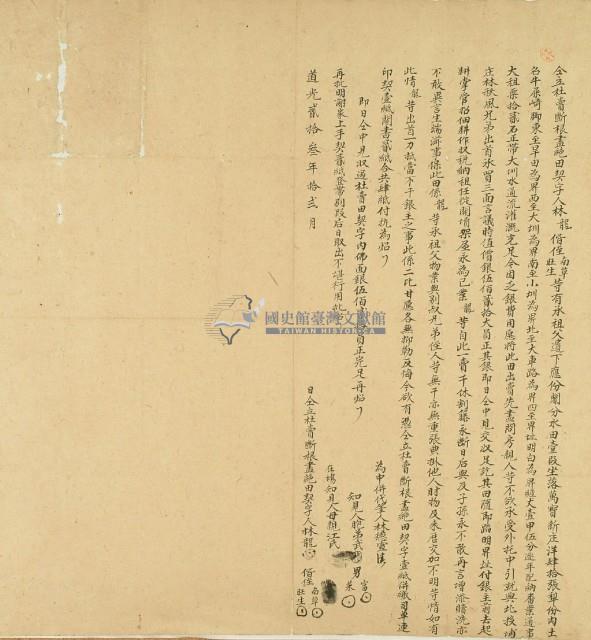 仝立杜賣斷根盡絕田契字人林龍偕侄南草旺生等有承祖父遺下應份鬮分水田壹段坐落萬寶新庄洋肆拾張犁份內土
名牛厝崎腳東至旱田為界西至大圳為界南至小圳為界北至大車路為界四至界址明白為界經丈壹甲伍分逐年配納番業通事
大租粟拾貳石正帶大圳水通流灌溉充足今因乏銀費用應將此田出賣先盡問房親人等不欲承受外托中引就與北投埔
庄林秋風兄弟出首承買三面言議時值價銀伍佰貳拾大員正其銀即日仝中見交收足訖其田隨即踏明界址付銀主前去起
耕掌管招佃耕作收稅納租任從開墳架屋永為己業龍等自此一賣千休割籐永斷日后與及子孫永不敢再言增添贖洗亦
不敢異言生端滋事保此田係龍等承祖父物業與別叔兄弟侄人等無干亦無重張典掛他人財物及來歷交加不明等情如有
此情龍等出首一力抵當不干銀主之事此係二比甘愿各無抑勒反悔今欲有憑仝立杜賣斷根盡絕田契字壹紙併繳司單連
印契壹紙鬮書貳紙合共肆紙付執為炤
即日仝中見收過杜賣田契字內佛面銀伍佰 員正完足再炤
再批明謝家上手契貳紙登帶別段后日取出不堪行用批
為中併代筆人林德宣
知見人胞弟武 男富 葉
在場知見人母親江氏
道光貳拾叁年拾弍月 日仝立杜賣斷根盡絕田契字人林龍 偕侄南草旺生
國史館臺灣文獻館
TAIWAN HISTORICA